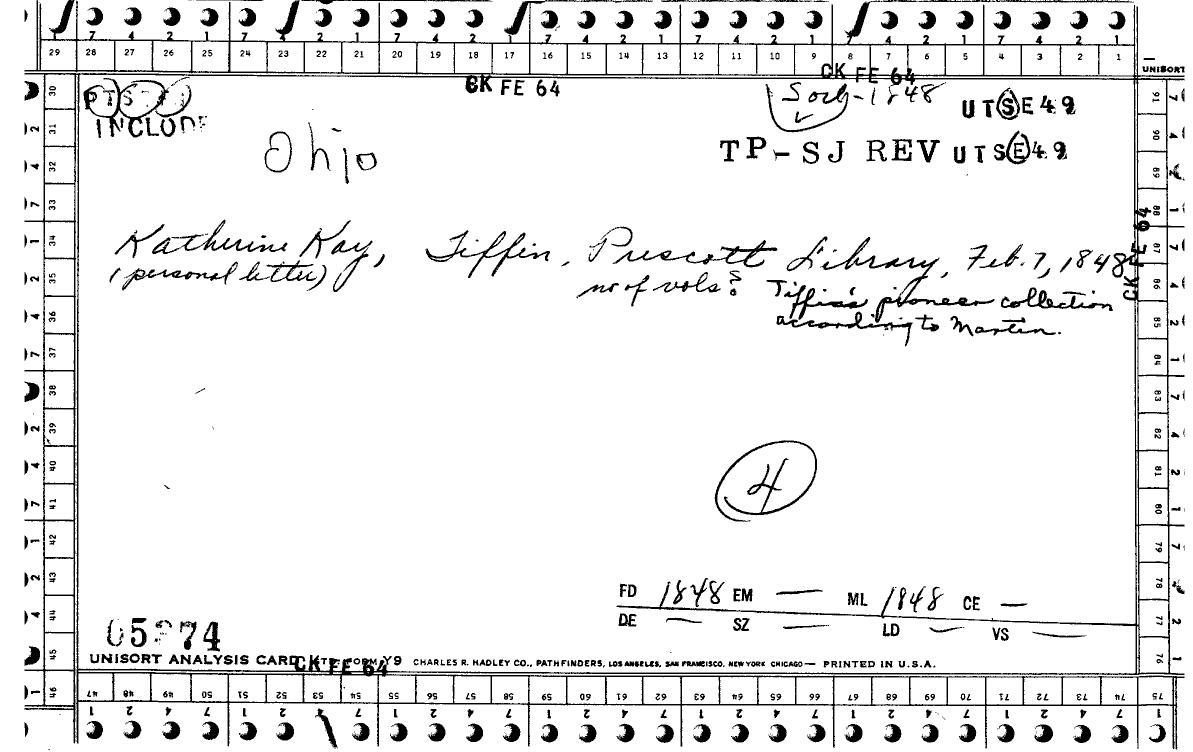 7 4 2 1 7 4 2 1 7 4 2 1 7 4 2 1 7 4 2 1 7 4 2 1 7 4 2 1
29 28 27 26 25 24 23 22 21 20 19 18 17 16 15 14 13 12 11 10 9 8 7 6 5 4 3 2 1
UNISORT
CK FE 64
CK FE 64
INCLUDE
1848
UTSE49
Ohio
TP-SJ REV UTSE49
Katherine Kay, Tiffin, Prescott Library, Feb. 7, 1848
(personal letter) no of vols? Tiffin's pioneer collection
according to Martin.
CK FE 64
4
FD 1848 EM — ML 1848 CE —
DE — SZ — LD — VS —
74
UNISORT ANALYSIS CARD Y9 CHARLES R. HADLEY CO., PATHFINDERS, LOS ANGELES, SAN FRANCISCO, NEW YORK CHICAGO — PRINTED IN U.S.A.
CK FE 64
30 31 32 33 34 35 36 37 38 39 40 41 42 43 44 45 46
91 90 89 88 87 86 85 84 83 82 81 80 79 78 77 76
47 48 49 50 51 52 53 54 55 56 57 58 59 60 61 62 63 64 65 66 67 68 69 70 71 72 73 74 75
1 2 4 7 1 2 4 7 1 2 4 7 1 2 4 7 1 2 4 7 1 2 4 7 1 2 4 7 1